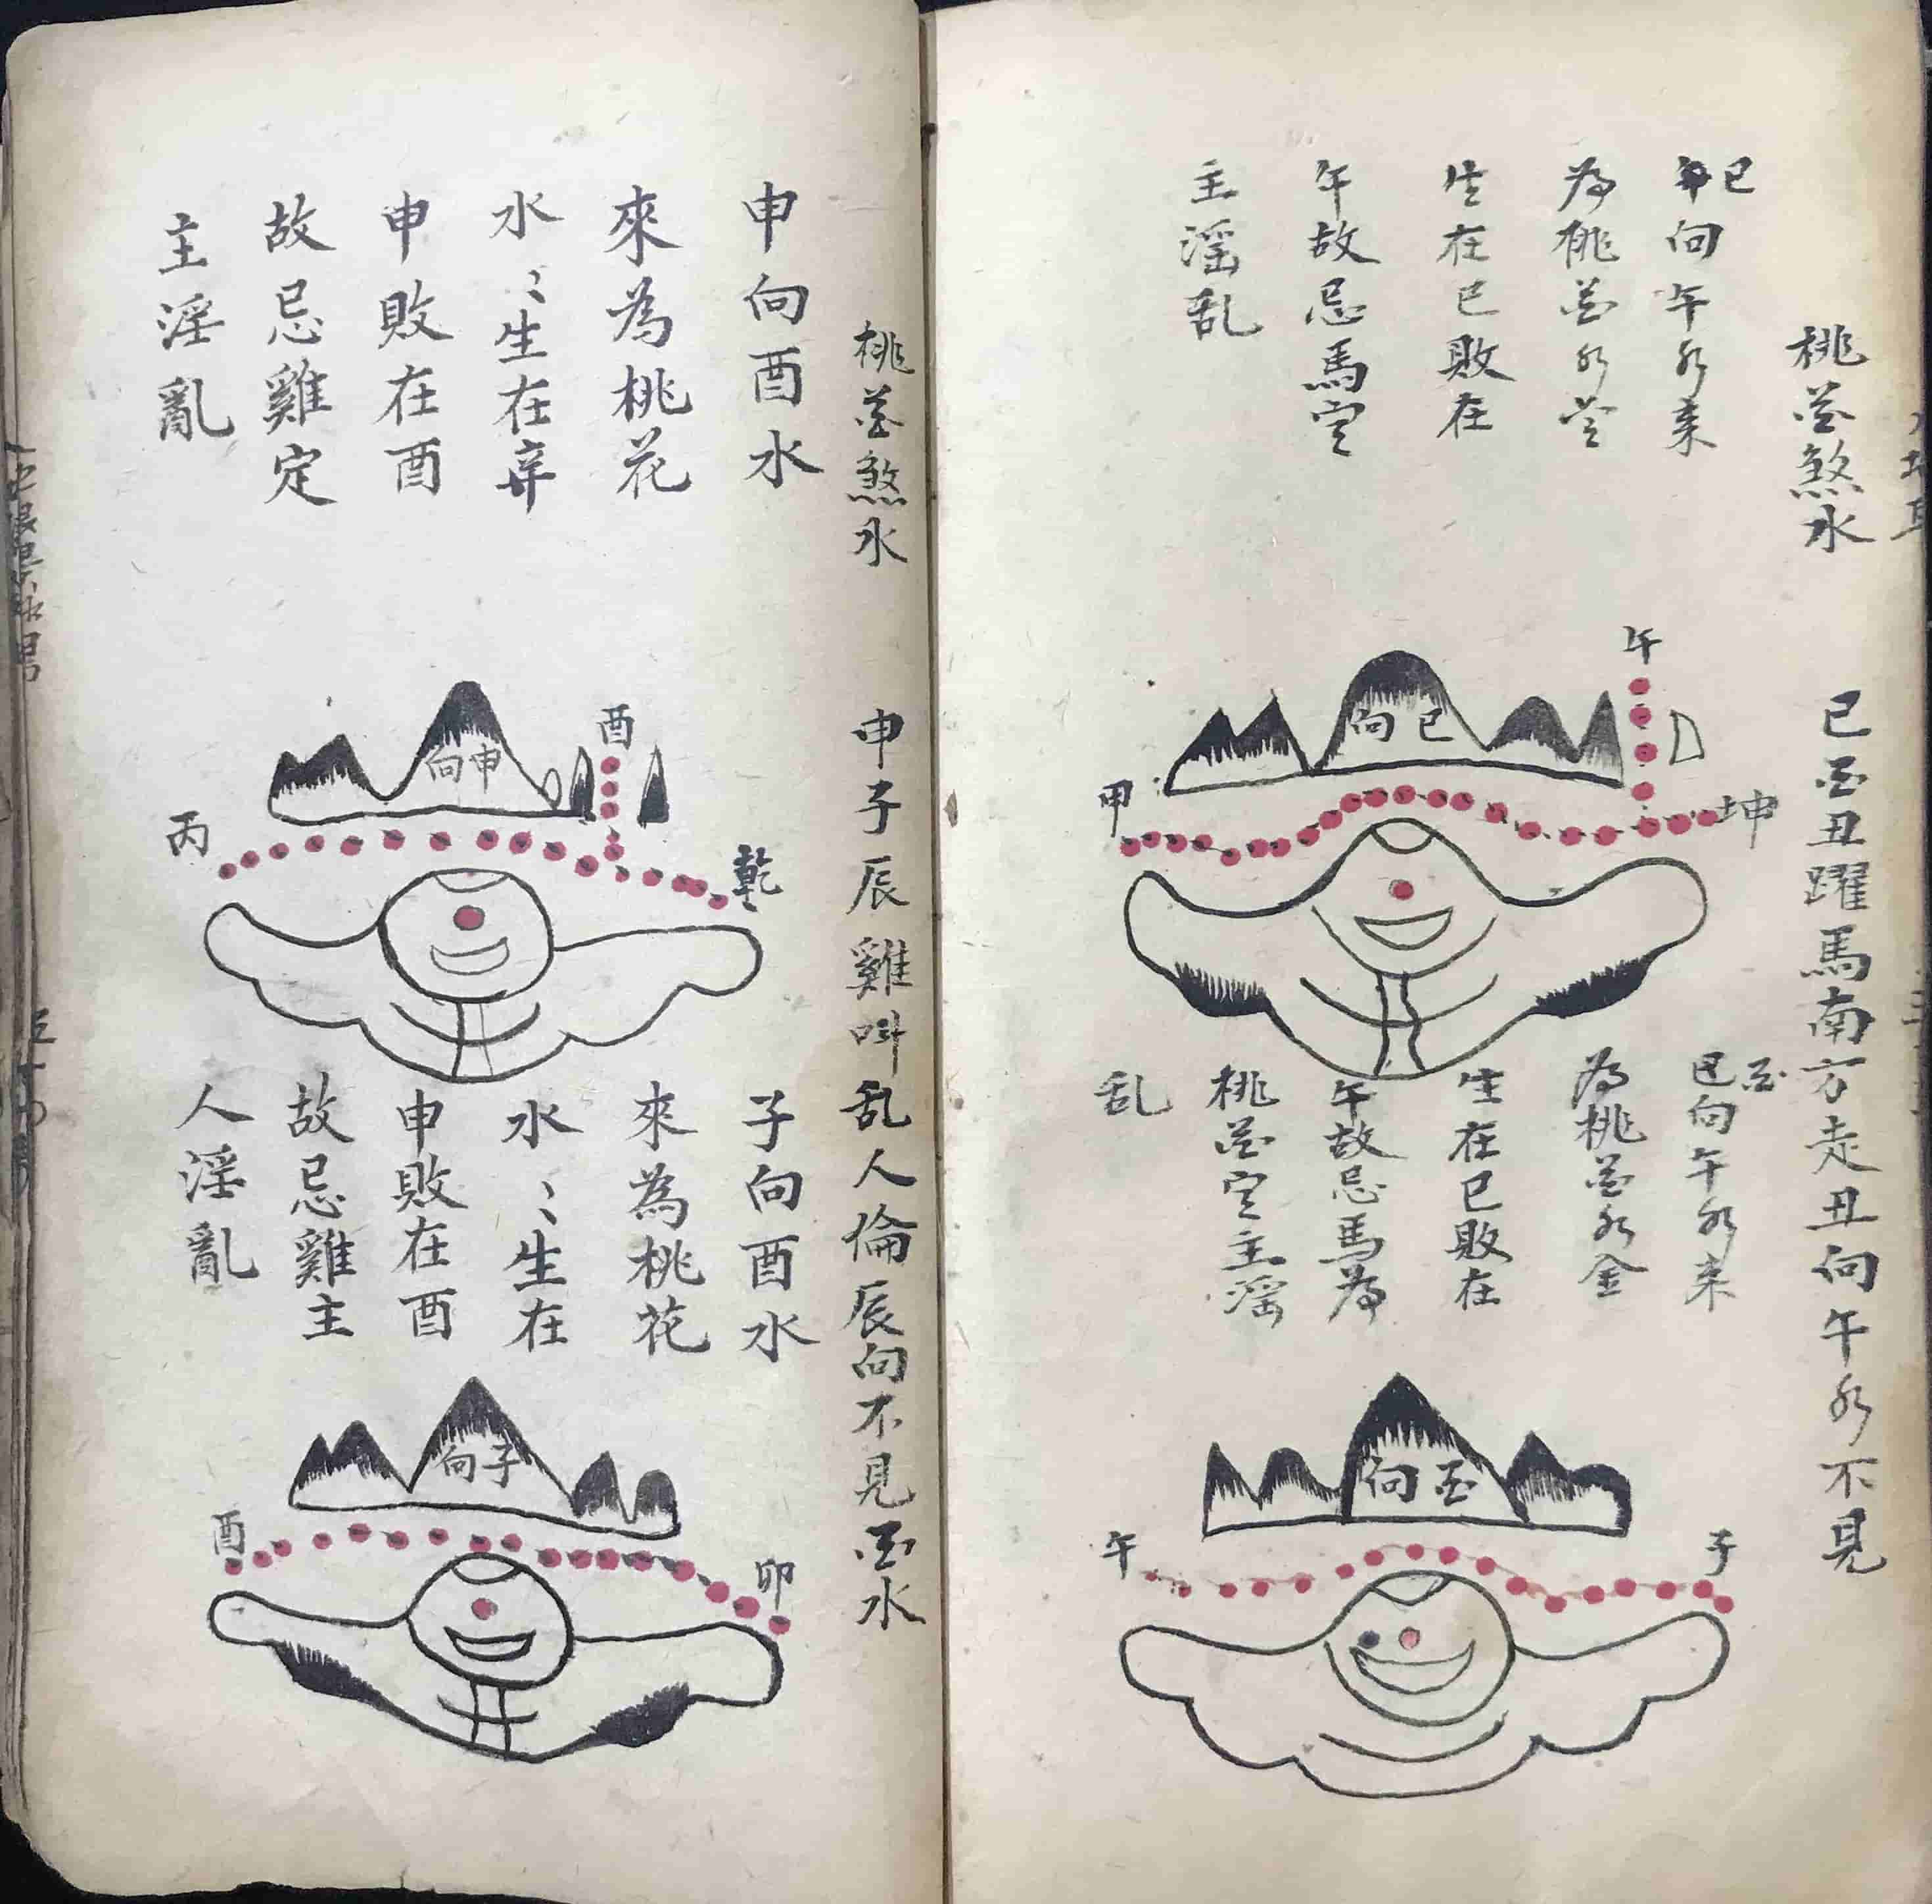 桃花煞水
巳酉丑躍馬南方走丑向午水不見
巳向午水来
為桃花水金
生在巳敗在
午故忌馬定
主淫乱
午
向巳
甲
坤
酉向午水来
為桃花水金
生在巳敗在
午故忌馬為
桃花定主淫
乱
向酉
午
子
桃花煞水
申子辰雞叫乱人倫辰向不見酉水
申向酉水
來為桃花
水〻生在
申敗在酉
故忌雞定
主淫亂
酉
向申
丙
乾
子向酉水
來為桃花
水〻生在
申敗在酉
故忌雞主
人淫亂
向子
酉
卯